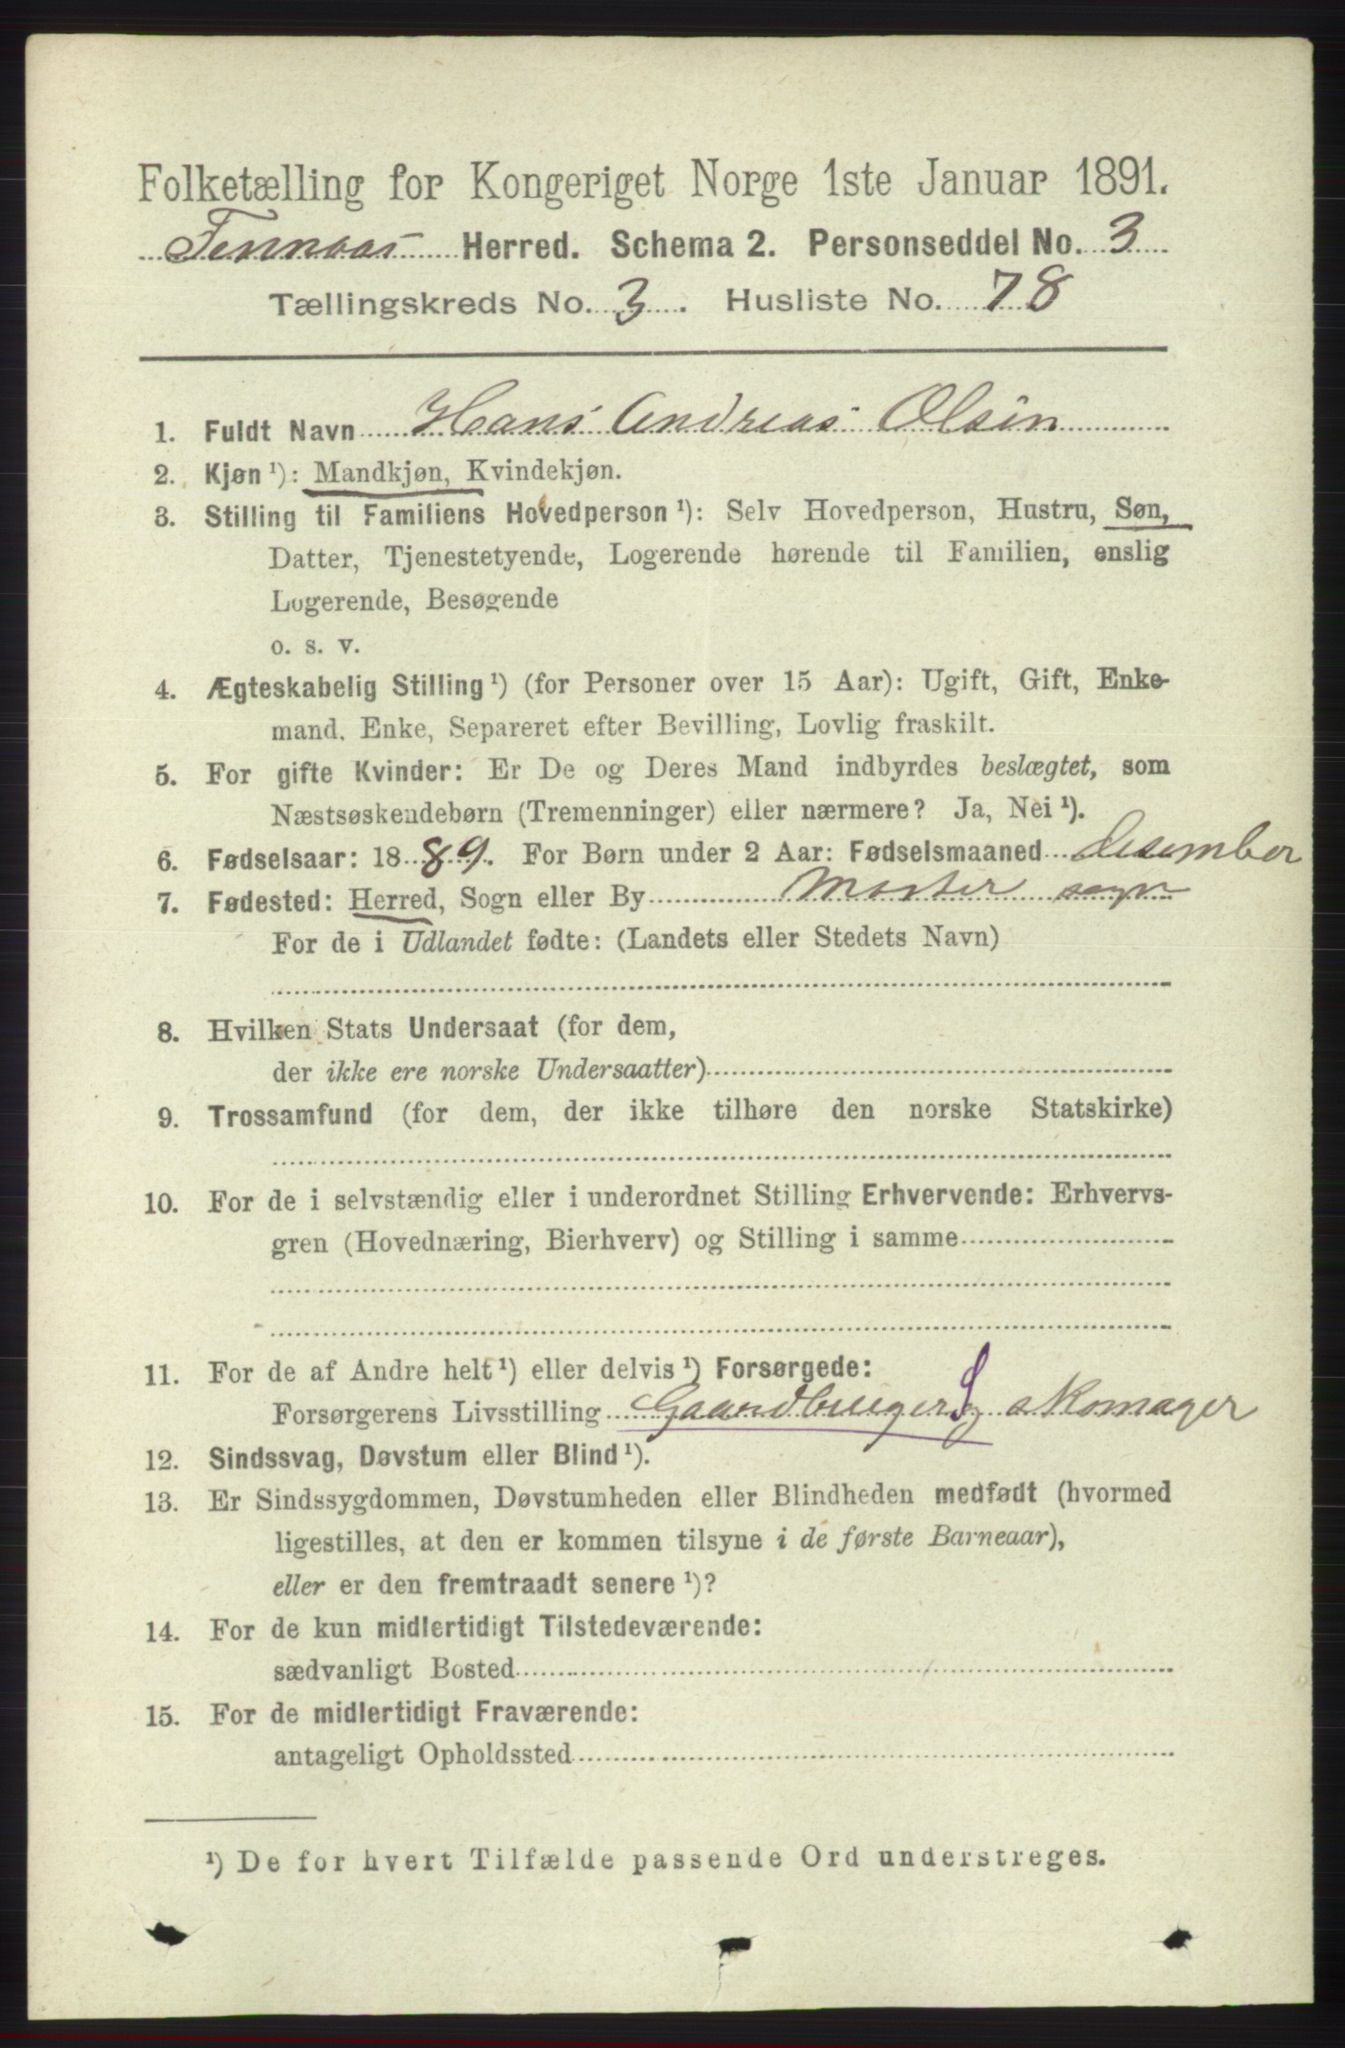 Folketælling for Kongeriget Norge 1ste Januar 1891.
Finnaas Herred. Schema 2. Personseddel No. 3
Tællingskreds No. 3. Husliste No. 78
1. Fuldt Navn Hans Andreas Olsen
2. Kjøn ¹): Mandkjøn, Kvindekjøn.
3. Stilling til Familiens Hovedperson ¹): Selv Hovedperson, Hustru, Søn,
Datter, Tjenestetyende, Logerende hørende til Familien, enslig
Logerende, Besøgende
o. s. v.
4. Ægteskabelig Stilling ¹) (for Personer over 15 Aar): Ugift, Gift, Enke-
mand, Enke, Separeret efter Bevilling, Lovlig fraskilt.
5. For gifte Kvinder: Er De og Deres Mand indbyrdes beslægtet, som
Næstsøskendebørn (Tremenninger) eller nærmere? Ja, Nei ¹).
6. Fødselsaar: 1889. For Børn under 2 Aar: Fødselsmaaned desember
7. Fødested: Herred, Sogn eller By Moster sogn
For de i Udlandet fødte: (Landets eller Stedets Navn)
8. Hvilken Stats Undersaat (for dem,
der ikke ere norske Undersaatter)
9. Trossamfund (for dem, der ikke tilhøre den norske Statskirke)
10. For de i selvstændig eller i underordnet Stilling Erhvervende: Erhvervs-
gren (Hovednæring, Bierhverv) og Stilling i samme
11. For de af Andre helt ¹) eller delvis ¹) Forsørgede:
Forsørgerens Livsstilling Gaardbruger S og skomager
12. Sindssvag, Døvstum eller Blind ¹).
13. Er Sindssygdommen, Døvstumheden eller Blindheden medfødt (hvormed
ligestilles, at den er kommen tilsyne i de første Barneaar),
eller er den fremtraadt senere ¹)?
14. For de kun midlertidigt Tilstedeværende:
sædvanligt Bosted
15. For de midlertidigt Fraværende:
antageligt Opholdssted
¹) De for hvert Tilfælde passende Ord understreges.